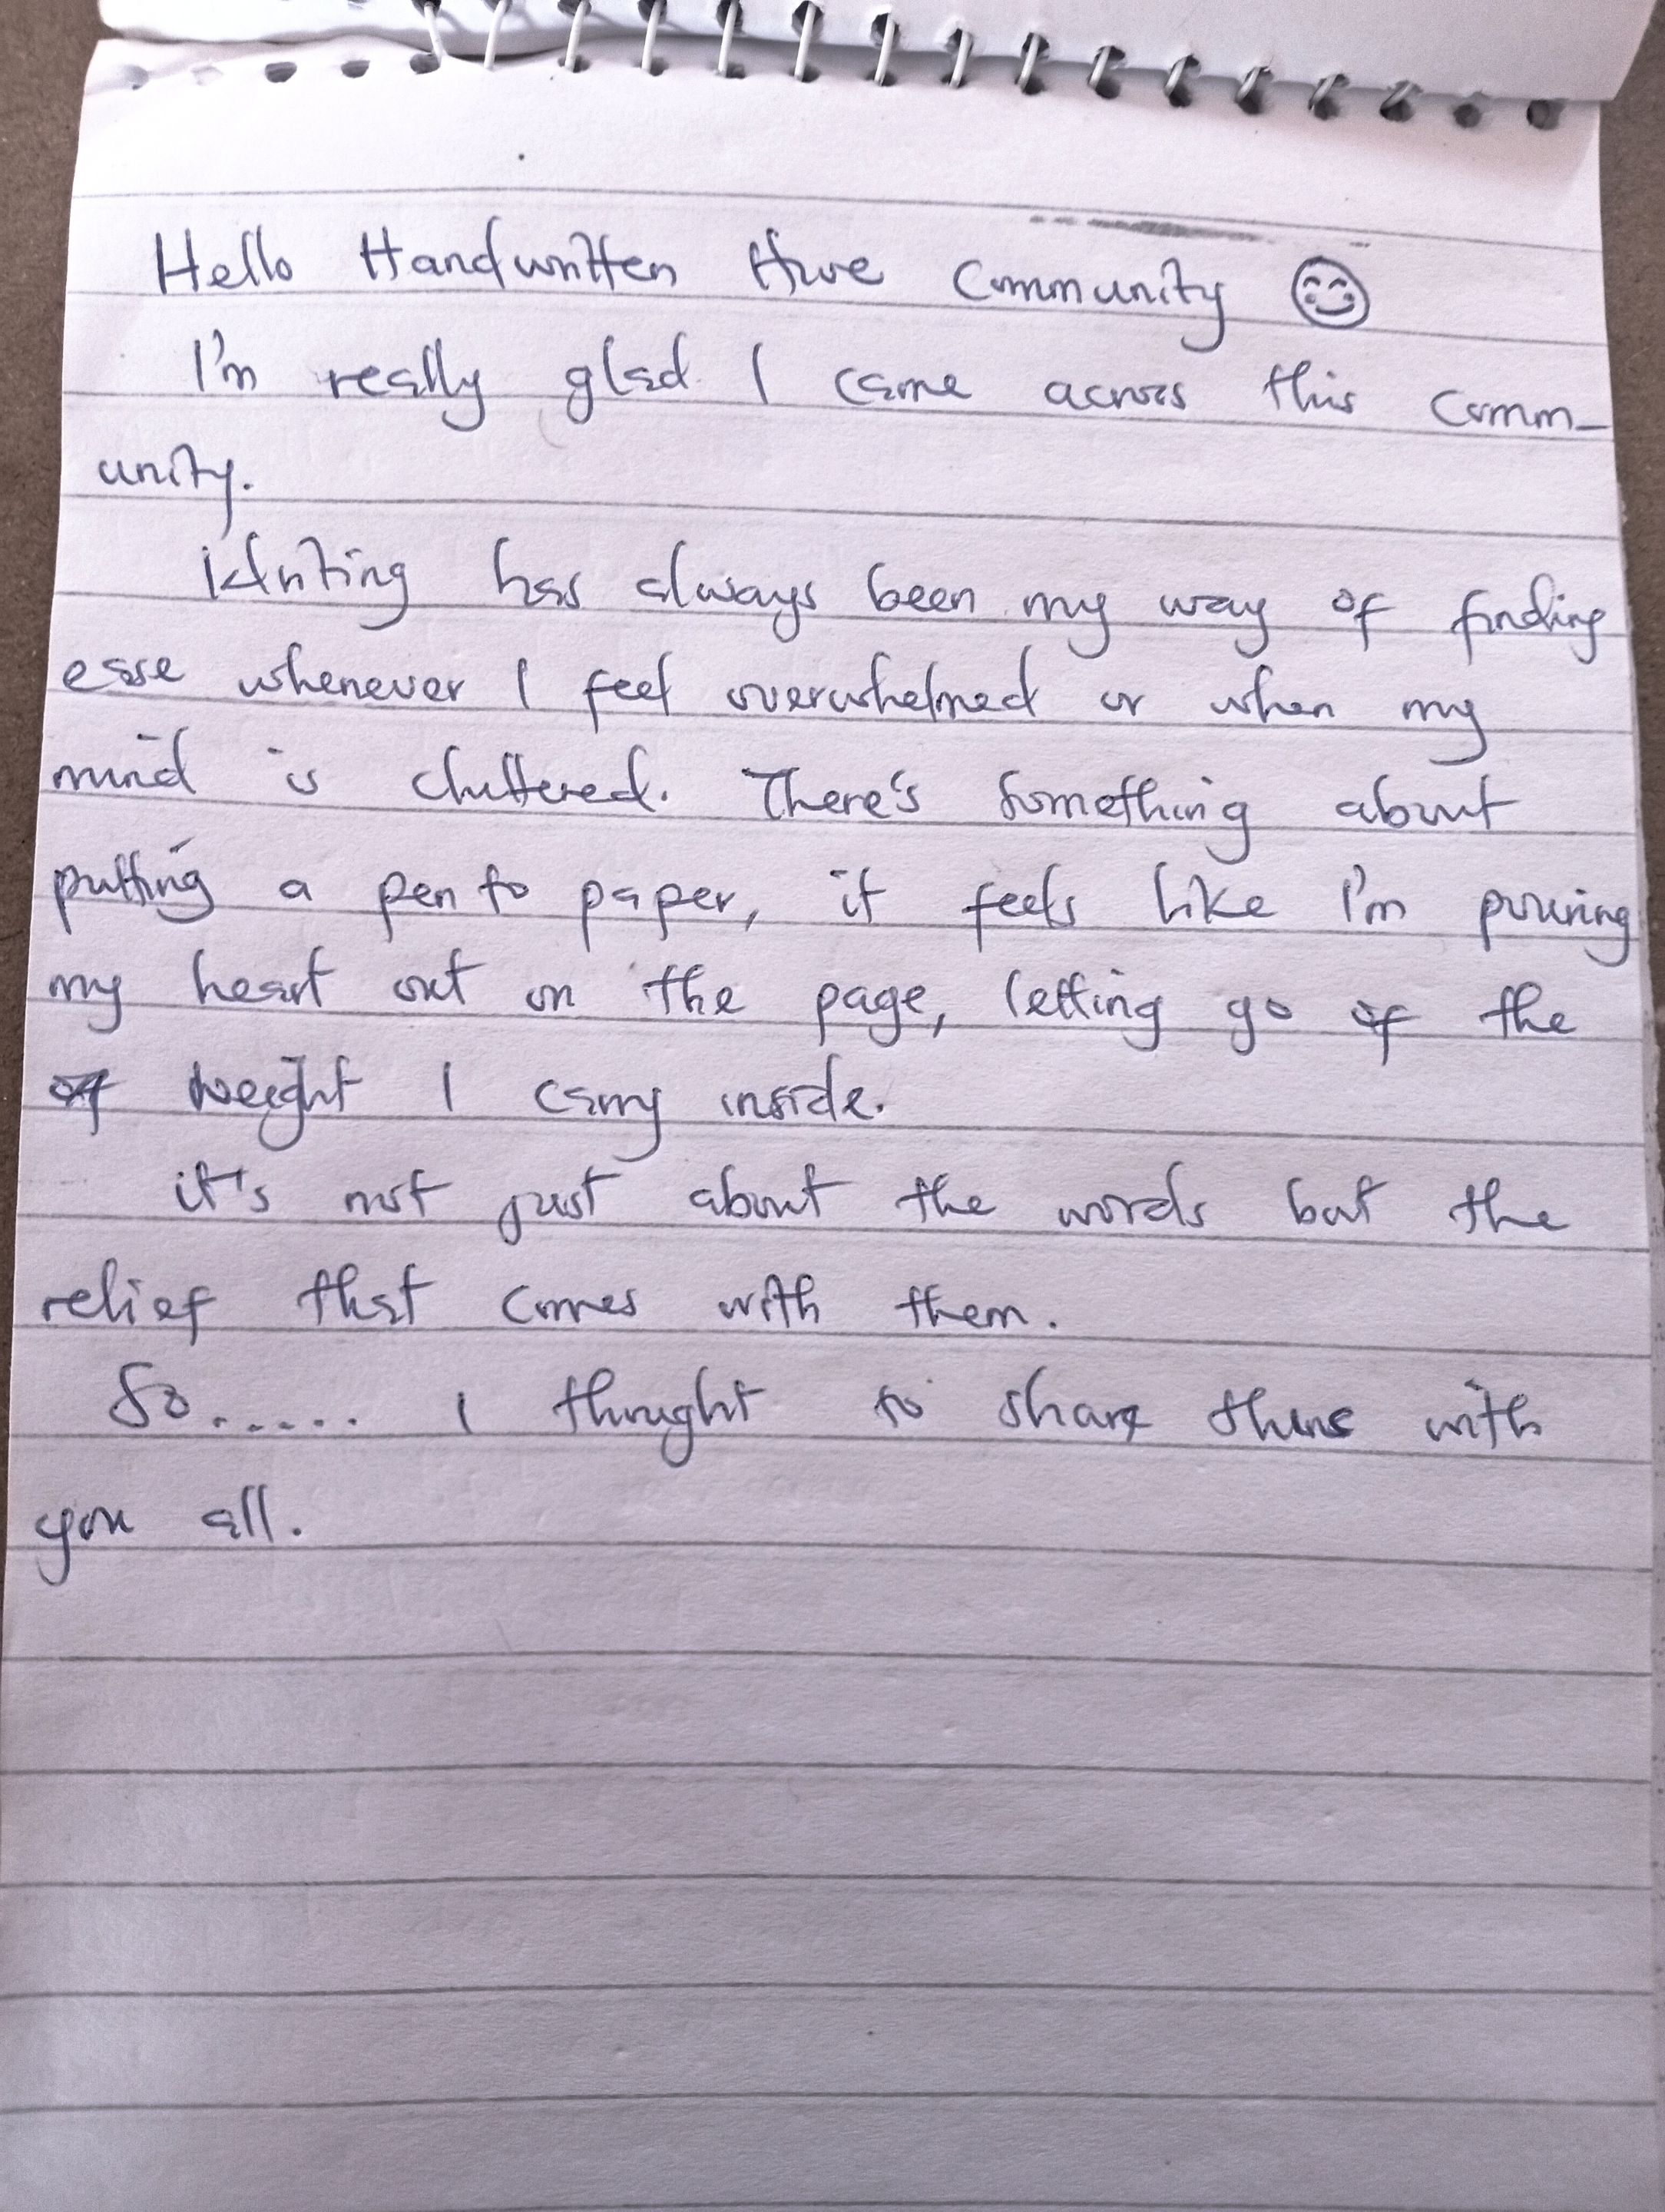 Hello Handwritten Hive Community 😊
I'm really glad I came across this comm-
unity.
Writing has always been my way of finding
ease whenever I feel overwhelmed or when my
mind is cluttered. There's something about
putting a pen to paper, it feels like I'm pouring
my heart out on the page, letting go of the
weight I carry inside.
it's not just about the words but the
relief that comes with them.
So...... I thought to share this with
you all.